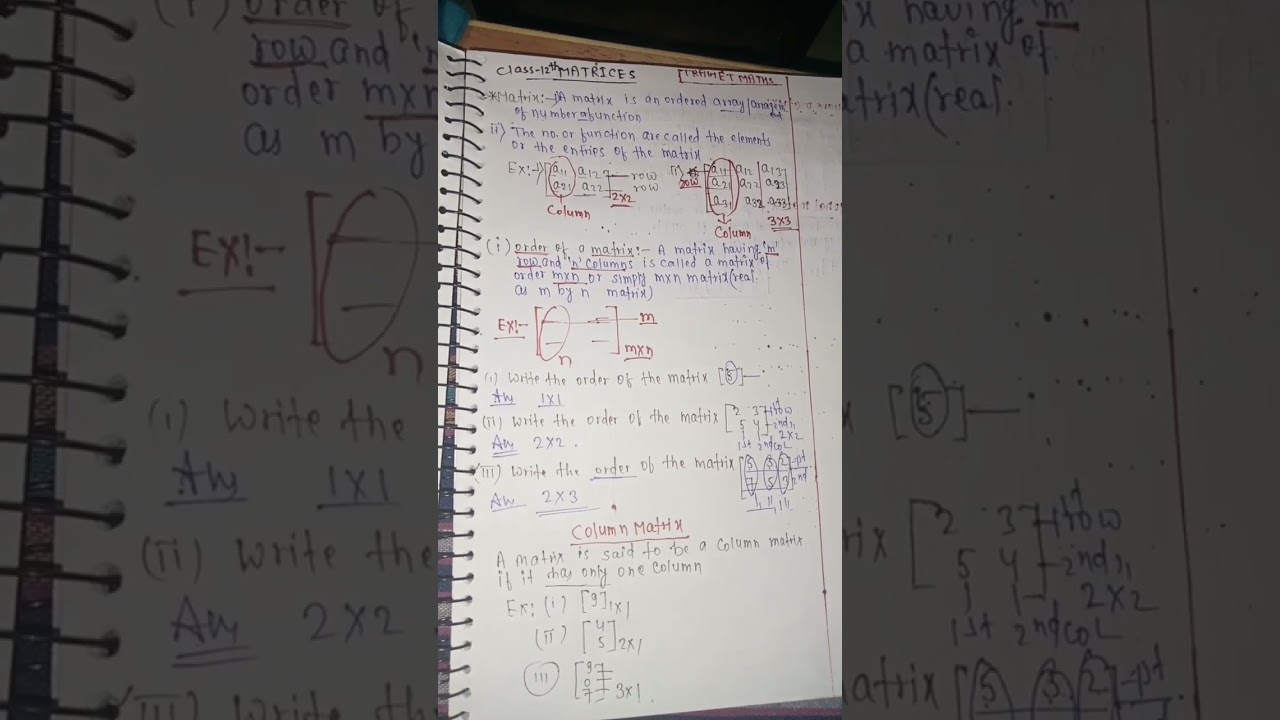 Class-12th MATRICES
*Matrix:- A matrix is an ordered array
of number function
ii) The no. or function are called the elements
or the entries of the matrix
Ex:- [a11 a12 row
a21 a22 row
2×2
Column
row
a11 a12 a13
a21 a22 a23
a31 a32 a33
3×3
Column
(i) order of a matrix:- A matrix having 'm'
row and 'n' columns is called a matrix of
order m×n or simply m×n matrix (real
as m by n matrix)
Ex:- [ ] m
n m×n
(i) Write the order of the matrix [5]
An 1×1
(ii) Write the order of the matrix [2 3
5 4] 2nd
An 2×2. 2×2
1st 2nd COL
(III) Write the order of the matrix [5 5 2
7 5 3] 2nd
An 2×3
Column Matrix
A matrix is said to be a column matrix
if it has only one column
Ex: (i) [9]1×1
(ii) [4
5]2×1
III [9
0
7 3×1.